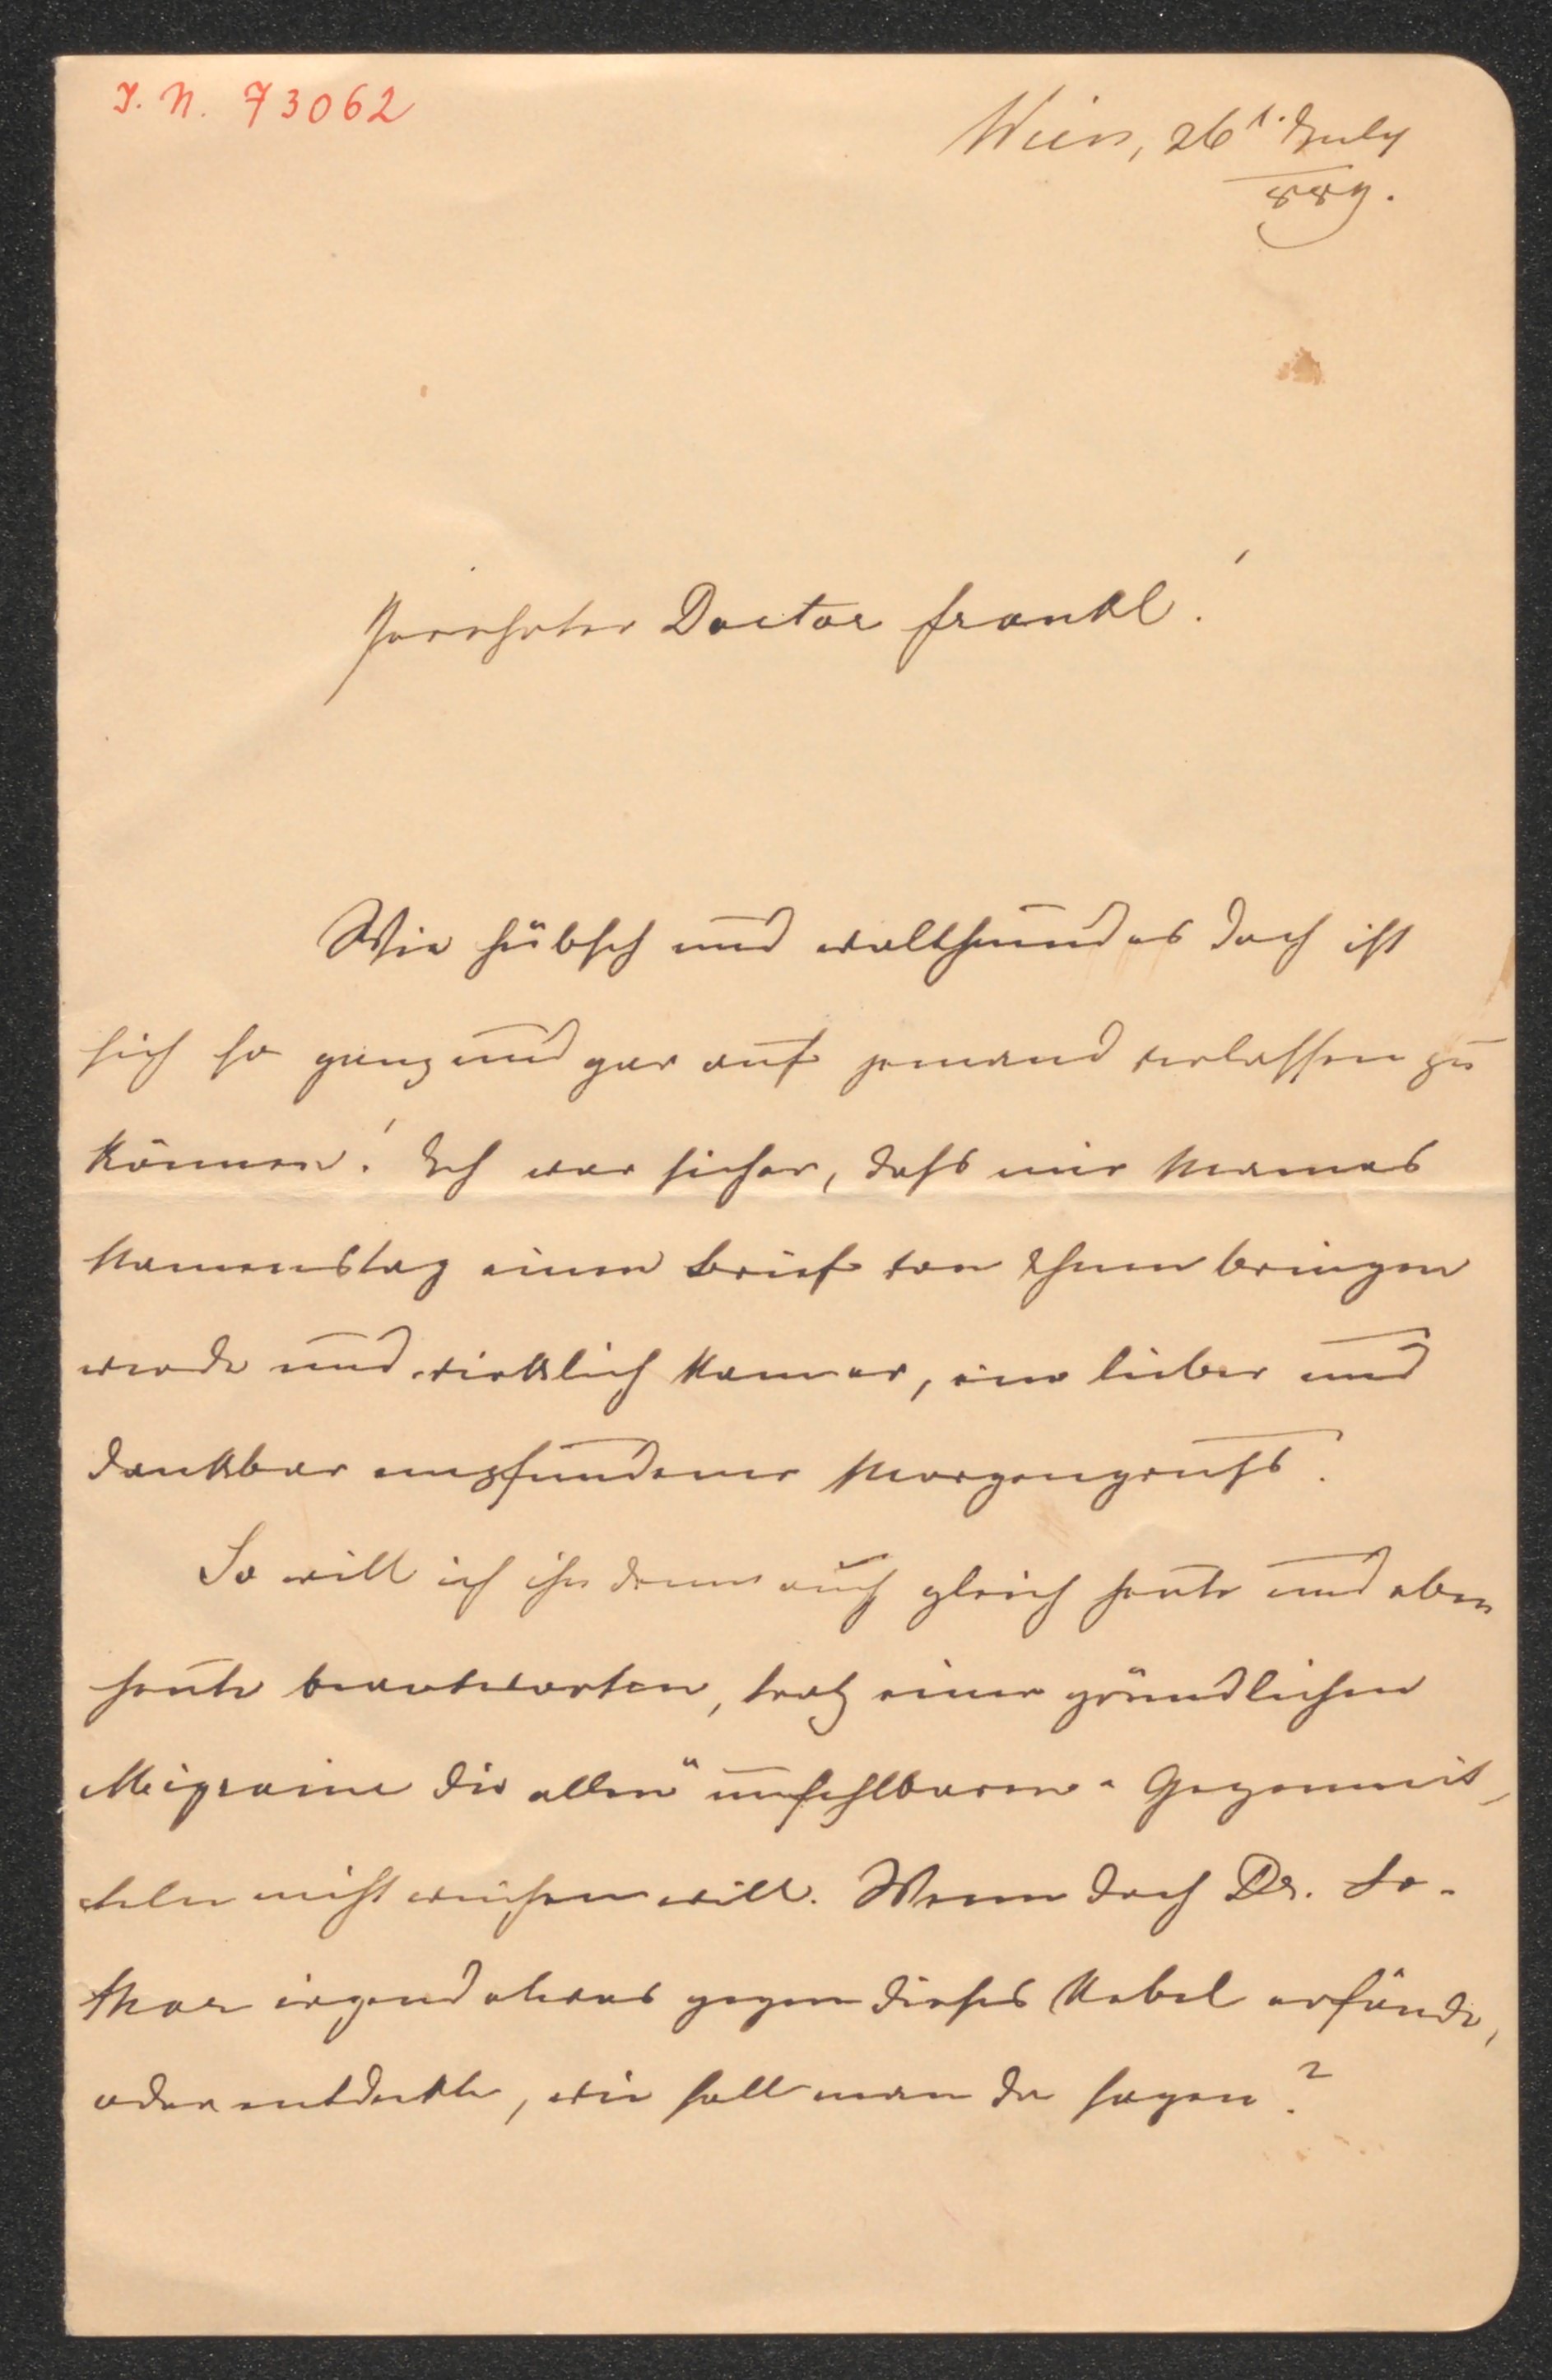 I. N. 73062
Wien, 26t. July
889.
Verehrter Doctor Frankl!
Wie hübsch und wolthuend es doch ist
sich so ganz und gar auf jemand verlassen zu
können! Ich war sicher, dass mir Mamas
Namenstag einen Brief von Ihnen bringen
werde und wirklich kam er, ein lieber und
dankbar empfundener Morgengruss.
So will ich ihn denn auch gleich heute und eben
heute beantworten, trotz einer gründlichen
Migraine die allen "unfehlbaren" Gegenmit-
teln nicht weichen will. Wenn doch Dr. Lo-
thar irgend etwas gegen dieses Uebel erfände,
oder entdeckte, wie soll man da sagen?